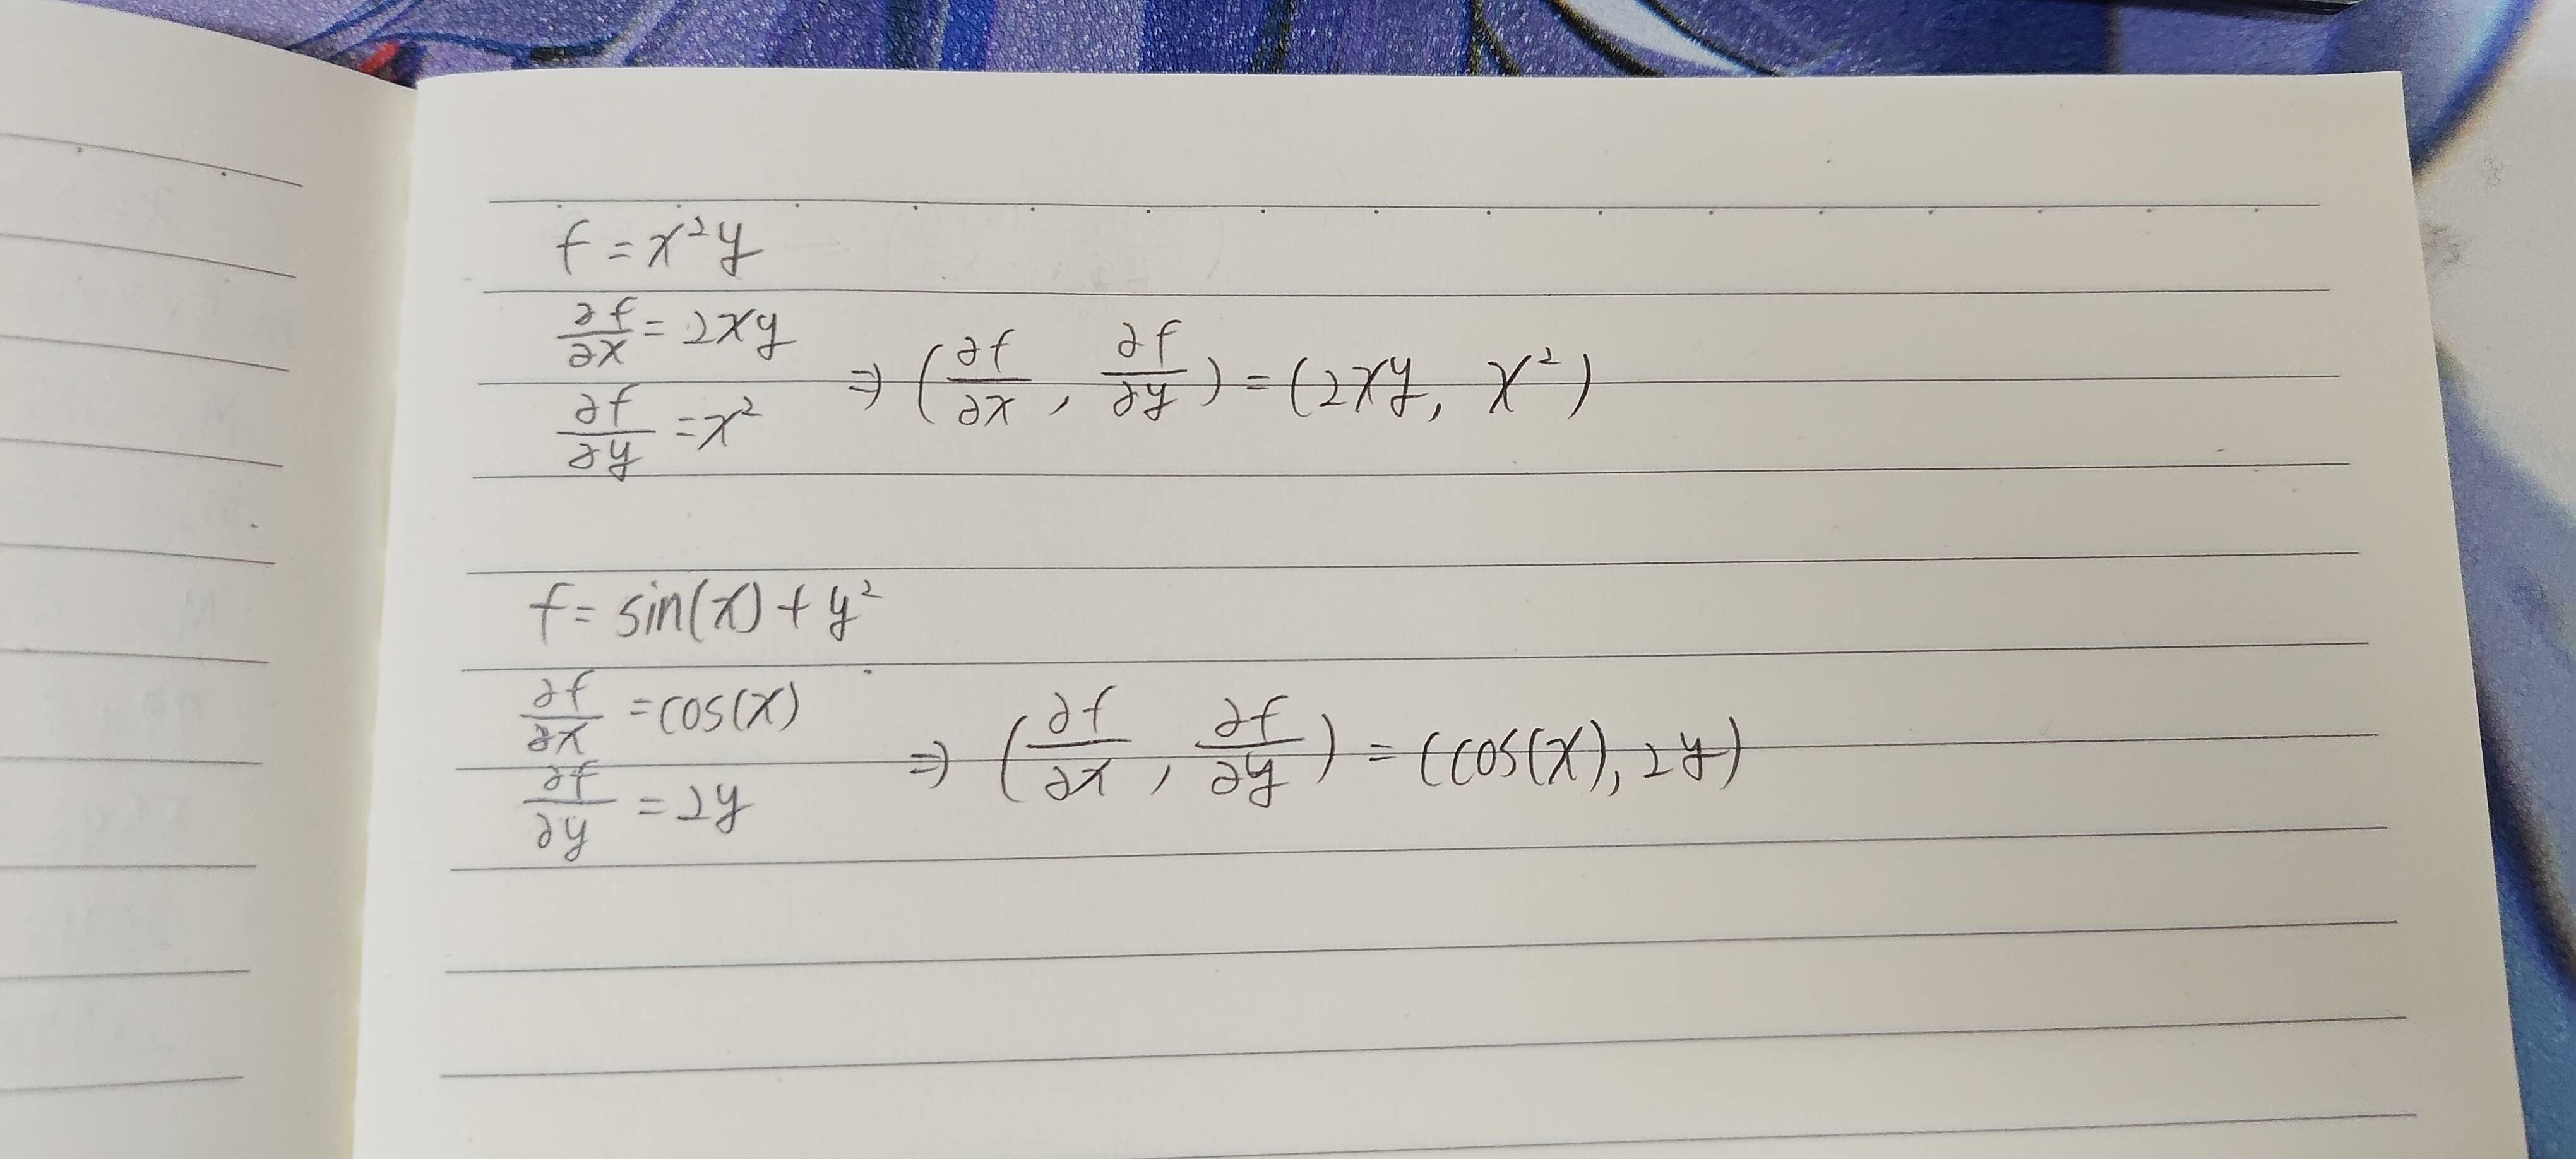 f = x²y
∂f/∂x = 2xy
∂f/∂y = x²
⇒ (∂f/∂x, ∂f/∂y) = (2xy, x²)
f = sin(x) + y²
∂f/∂x = cos(x)
∂f/∂y = 2y
⇒ (∂f/∂x, ∂f/∂y) = (cos(x), 2y)